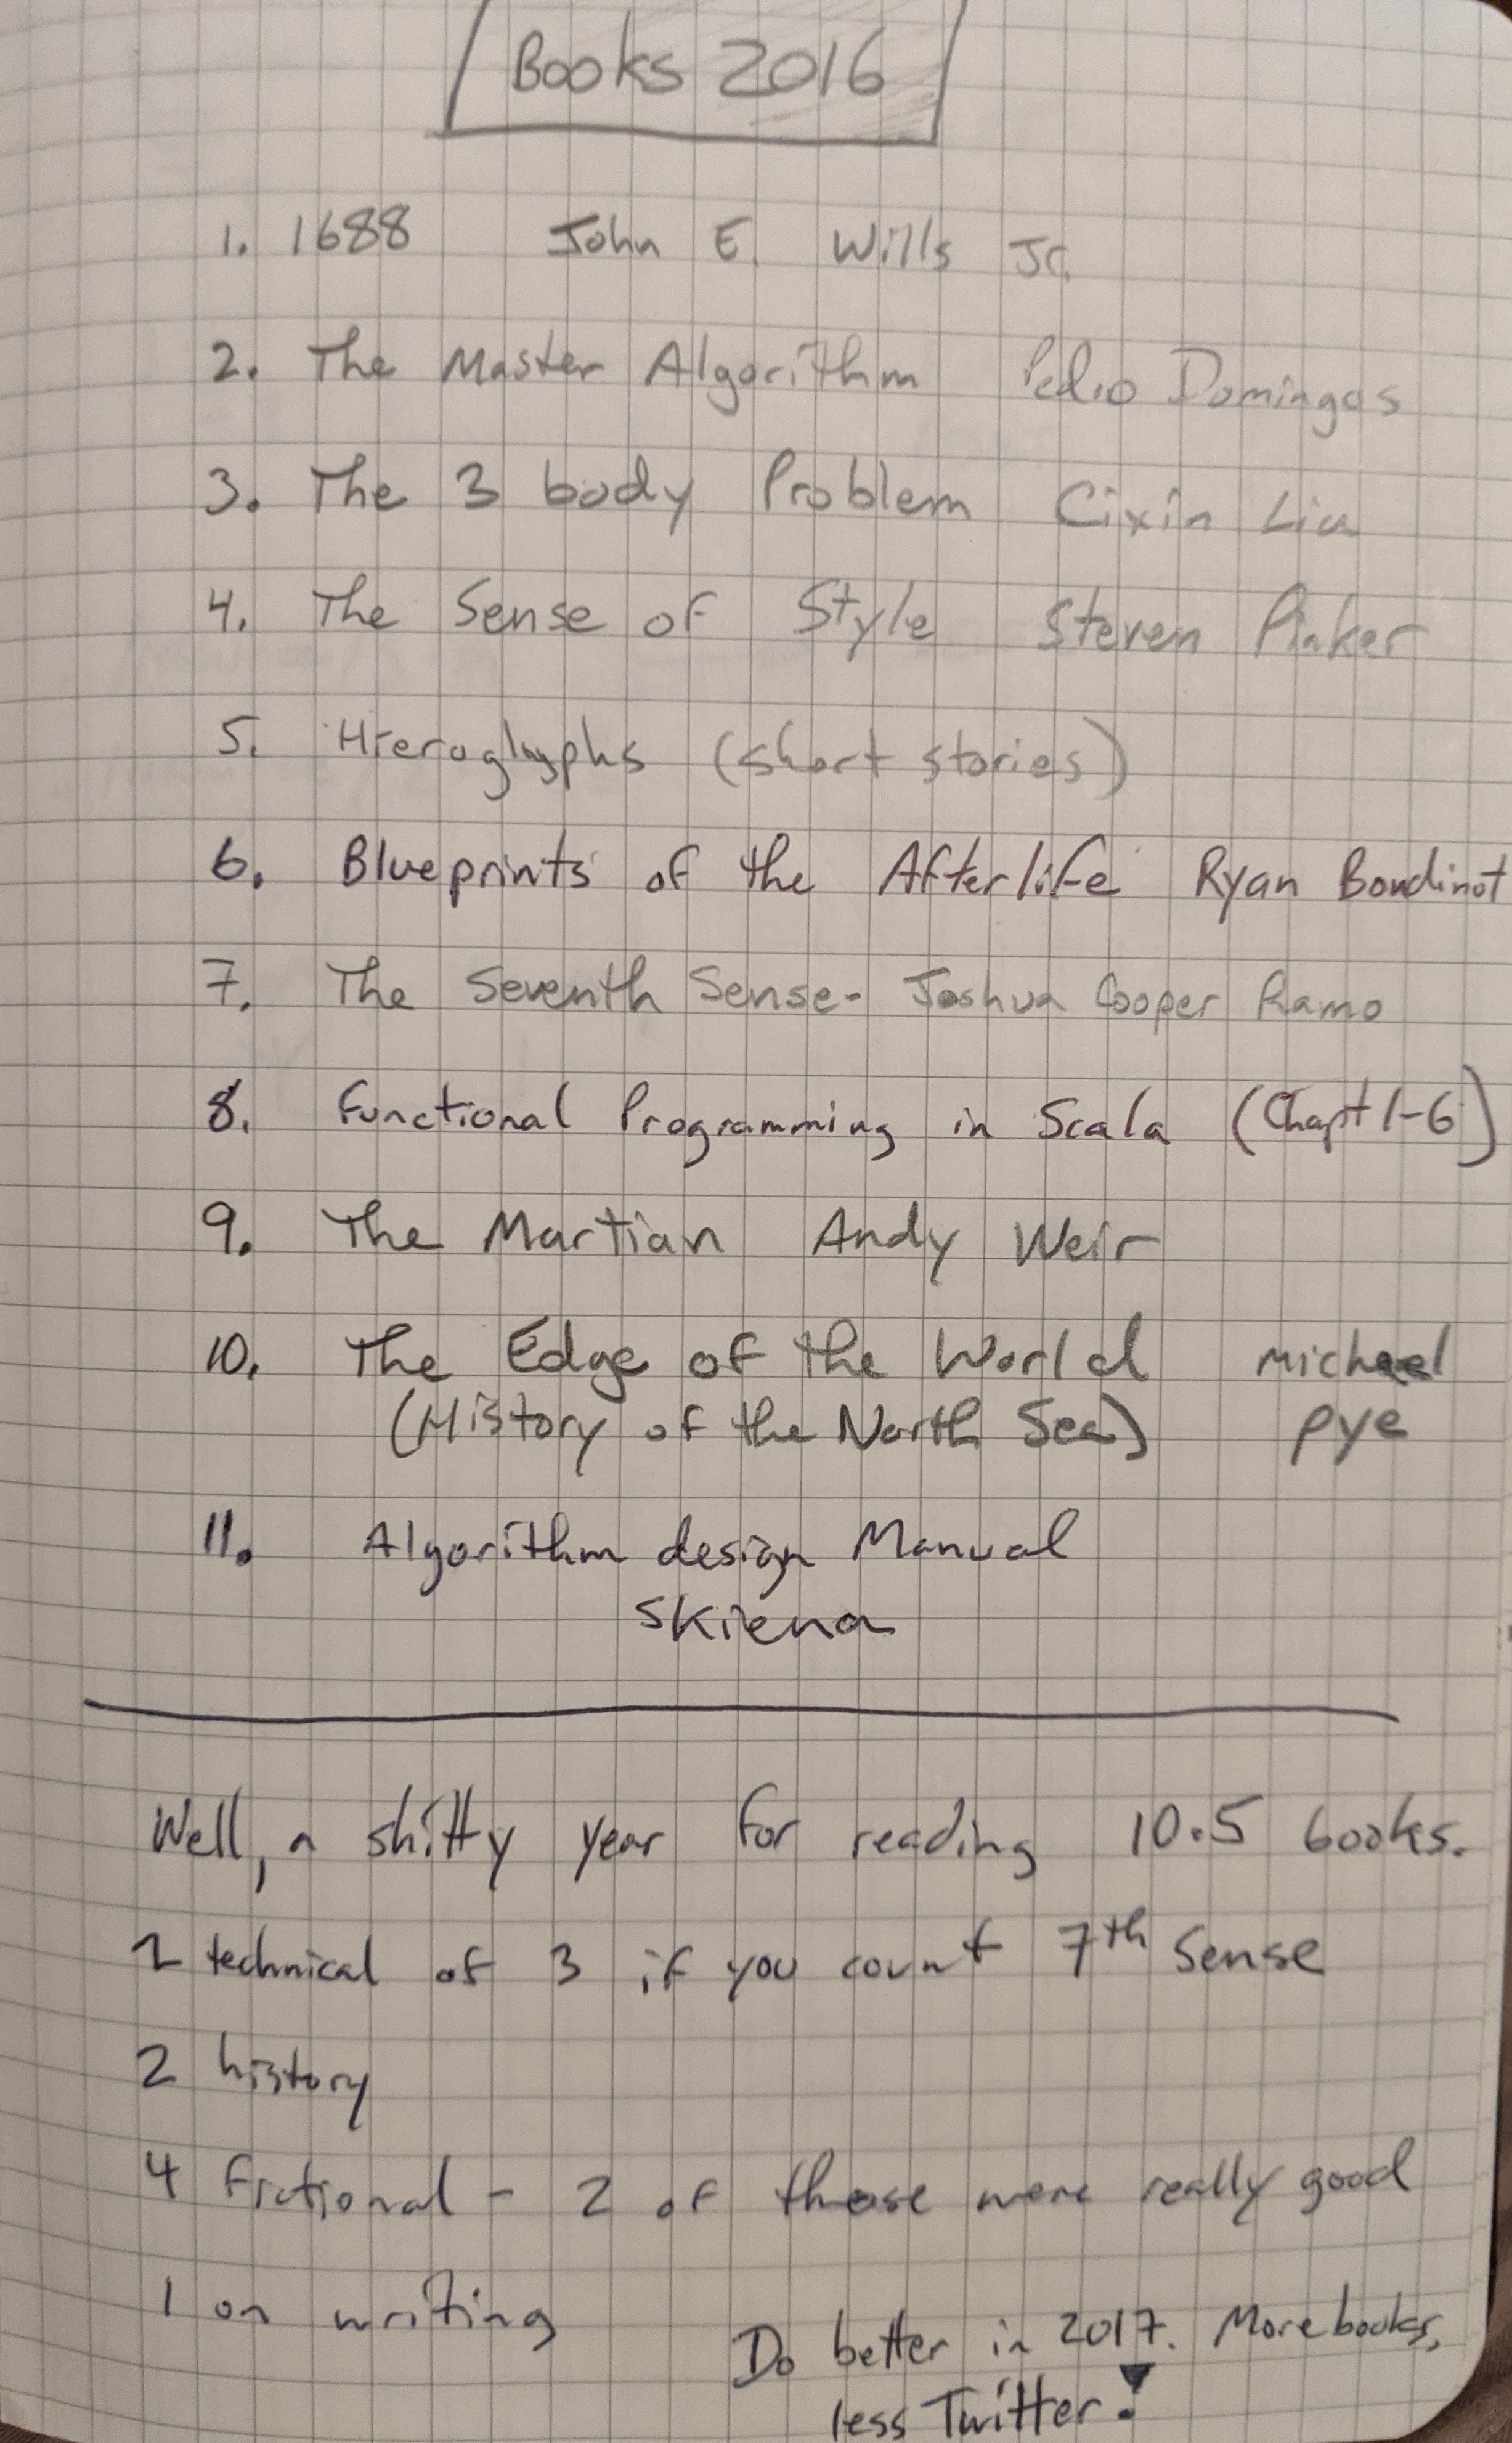 Books 2016
1. 1688 John E. Wills Jr.
2. The Master Algorithm Pedro Domingos
3. The 3 body Problem Cixin Liu
4. The Sense of Style Steven Pinker
5. Hieroglyphs (short stories)
6. Blueprints of the Afterlife Ryan Boudinot
7. The Seventh Sense- Joshua Cooper Ramo
8. Functional Programming in Scala (Chapt 1-6)
9. The Martian Andy Weir
10. The Edge of the World michael
(History of the North Sea) pye
11. Algorithm design Manual
Skiena
Well, a shitty year for reading 10.5 books.
2 technical of 3 if you count 7th Sense
2 history
4 fictional - 2 of those were really good
1 on writing
Do better in 2017. More books,
less Twitter!